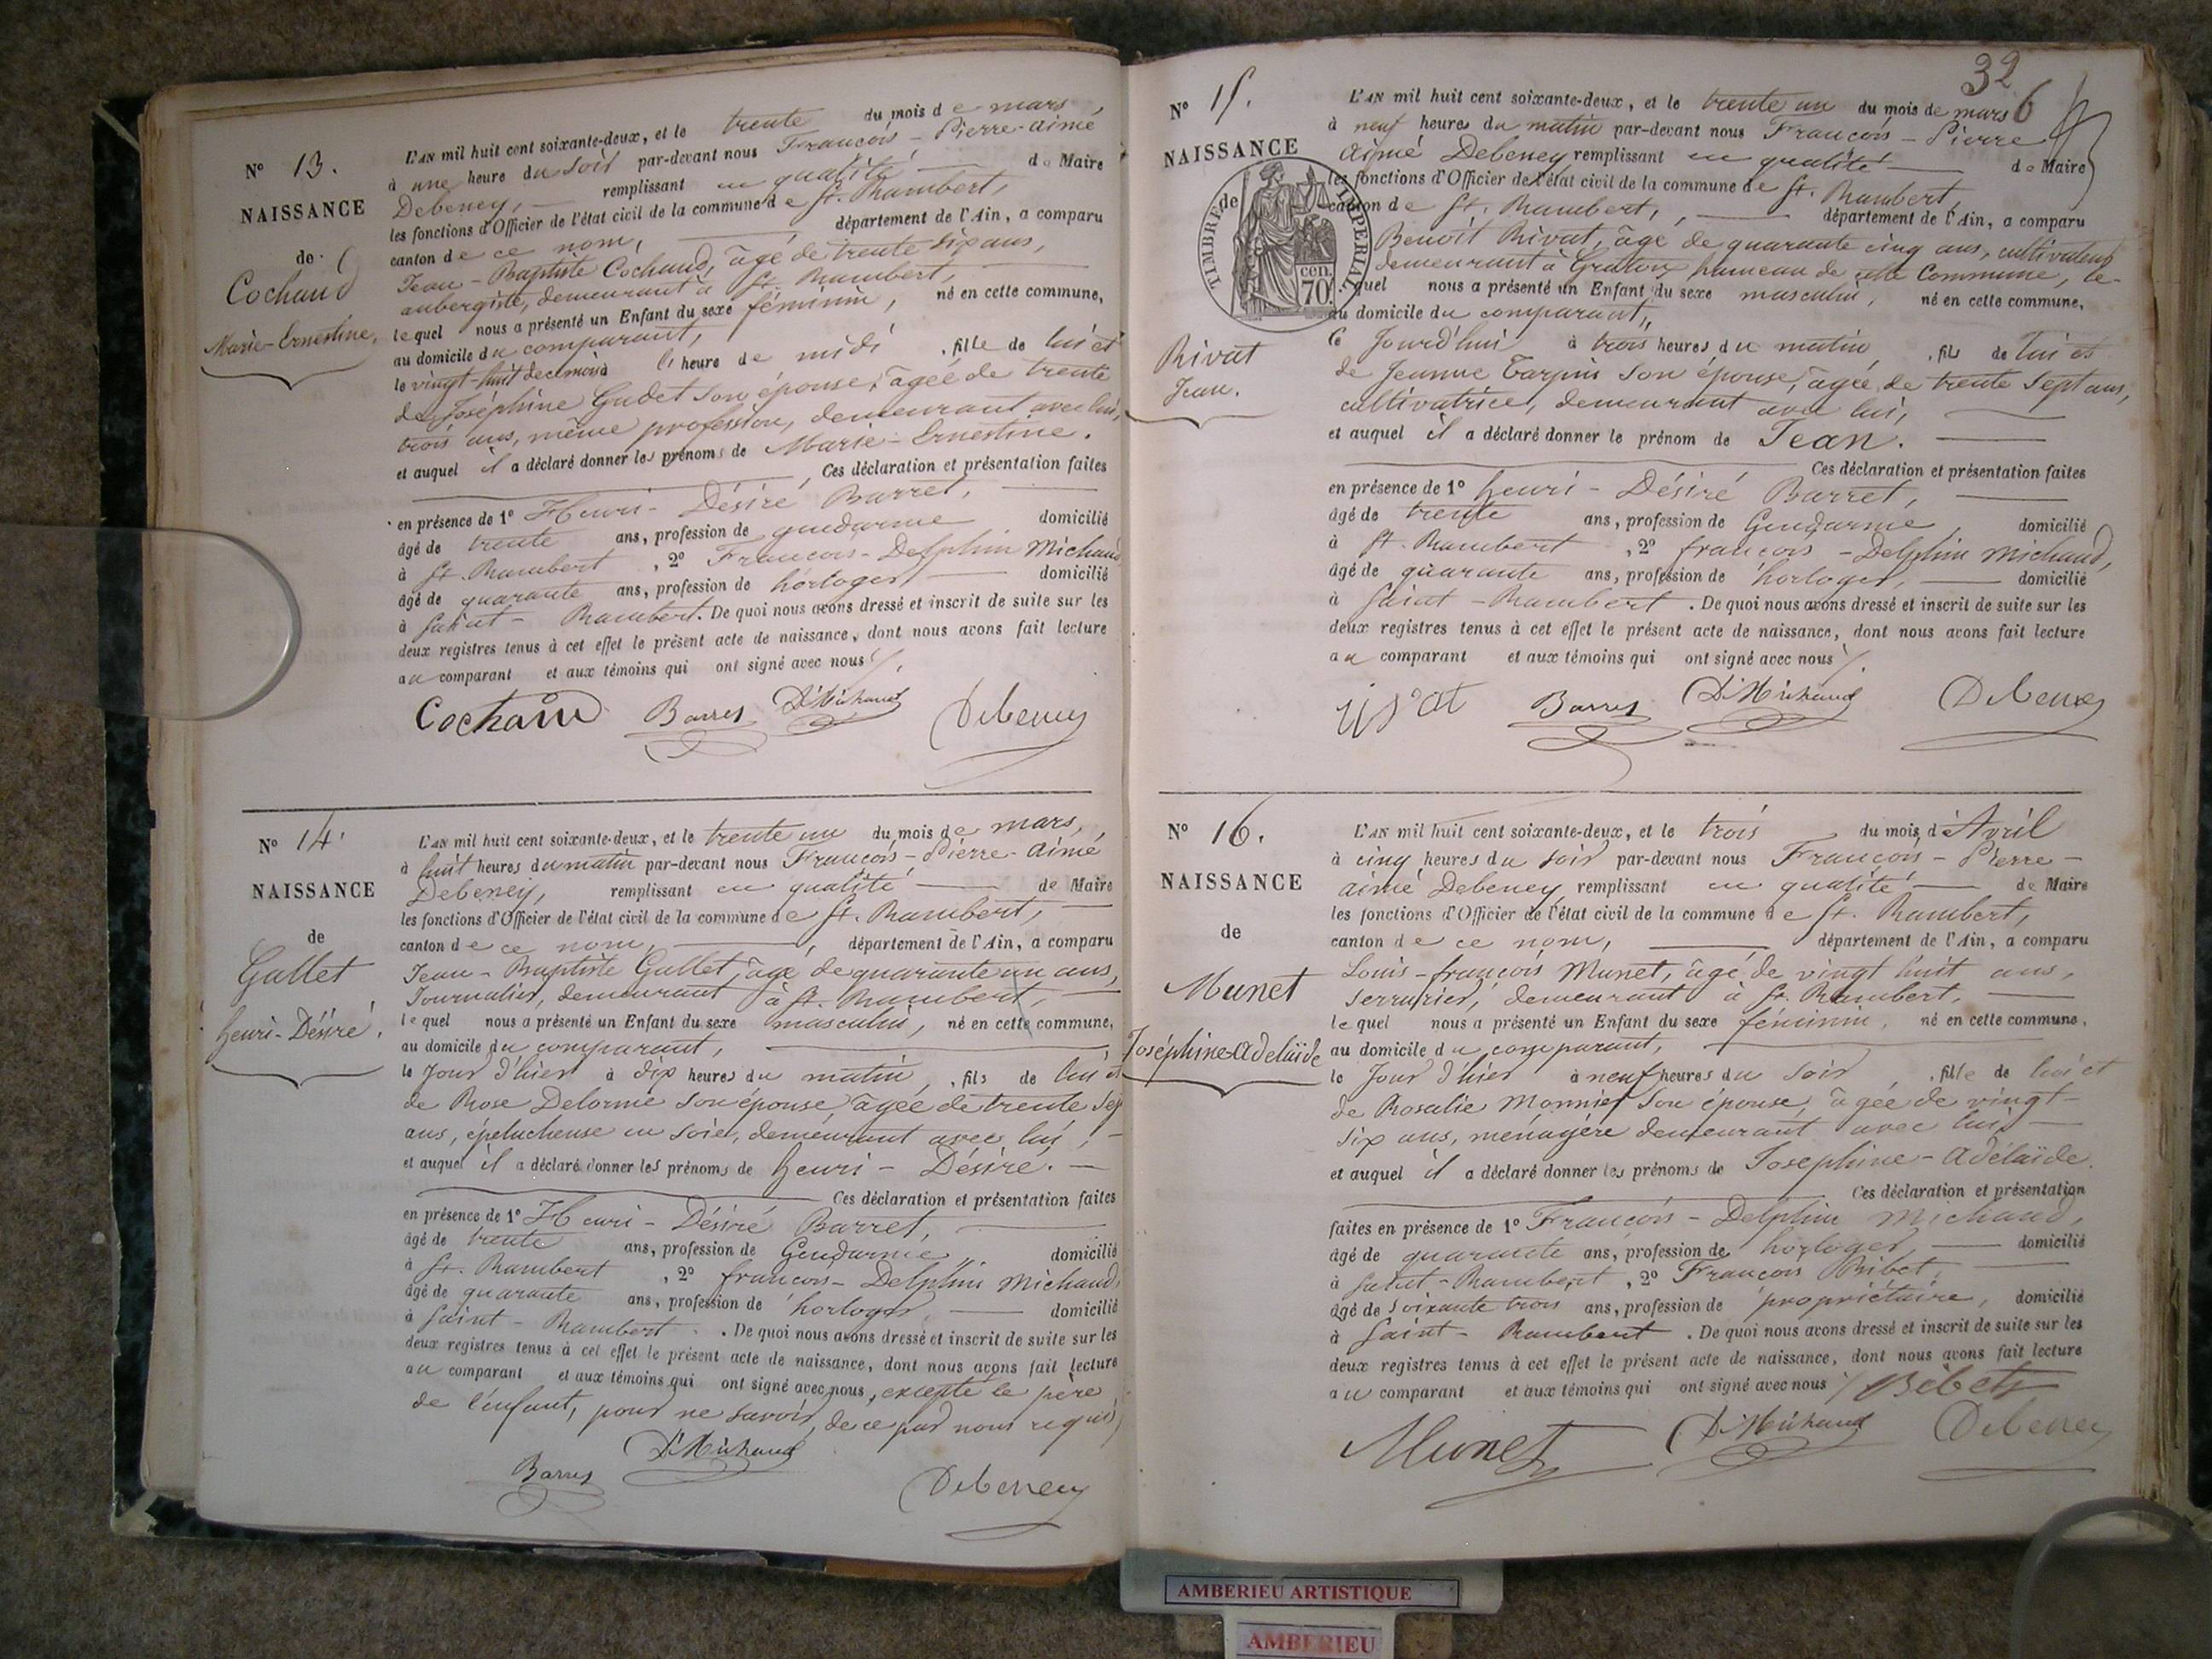 N° 13.
NAISSANCE
de
Cochaud
Marie-Ernestine,
L'AN mil huit cent soixante-deux, et le trente du mois de mars,
à une heure du soir par-devant nous François-Pierre-aimé
Debeney, remplissant en qualité de Maire
les fonctions d'Officier de l'état civil de la commune de St. Rambert,
canton de ce nom, département de l'Ain, a comparu
Jean-Baptiste Cochaud, âgé de trente six ans,
aubergiste, demeurant à St. Rambert,
lequel nous a présenté un Enfant du sexe féminin, né en cette commune,
au domicile du comparant,
le vingt-huit de ce mois à l'heure de midi, fille de lui et
de Joséphine Gudet son épouse, âgée de trente
trois ans, même profession, demeurant avec lui,
et auquel il a déclaré donner les prénoms de Marie-Ernestine.
Ces déclaration et présentation faites
en présence de 1° Henri-Désiré Barret,
âgé de trente ans, profession de gendarme domicilié
à St. Rambert, 2° François-Delphin Michaud
âgé de quarante ans, profession de horloger, domicilié
à Saint-Rambert. De quoi nous avons dressé et inscrit de suite sur les
deux registres tenus à cet effet le présent acte de naissance, dont nous avons fait lecture
au comparant et aux témoins qui ont signé avec nous.
Cochaud Barret D. Michaud Debeney
N° 14.
NAISSANCE
de
Gallet
henri-Désiré.
L'AN mil huit cent soixante-deux, et le trente un du mois de mars,
à huit heures du matin par-devant nous François-Pierre-aimé
Debeney, remplissant en qualité de Maire
les fonctions d'Officier de l'état civil de la commune de St. Rambert,
canton de ce nom, département de l'Ain, a comparu
Jean-Baptiste Gallet, âgé de quarante un ans,
Journalier, demeurant à St. Rambert,
lequel nous a présenté un Enfant du sexe masculin, né en cette commune,
au domicile du comparant,
le Jour d'hier à dix heures du matin, fils de lui et
de Rose Delorme son épouse, âgée de trente sept
ans, éplucheuse en soie, demeurant avec lui,
et auquel il a déclaré donner les prénoms de henri-Désiré.
Ces déclaration et présentation faites
en présence de 1° Henri-Désiré Barret,
âgé de trente ans, profession de Gendarme, domicilié
à St. Rambert, 2° françois-Delphin Michaud,
âgé de quarante ans, profession de horloger, domicilié
à Saint-Rambert. De quoi nous avons dressé et inscrit de suite sur les
deux registres tenus à cet effet le présent acte de naissance, dont nous avons fait lecture
au comparant et aux témoins qui ont signé avec nous, excepté le père
de l'enfant, pour ne savoir, de ce par nous requis
Barret D. Michaud Debeney
32
6
N° 15.
NAISSANCE
de
TIMBRE IMPERIAL
70 cen.
Rivat
Jean.
L'AN mil huit cent soixante-deux, et le trente un du mois de mars
à neuf heures du matin par-devant nous François-Pierre
Aimé Debeney remplissant en qualité de Maire
les fonctions d'Officier de l'état civil de la commune de St. Rambert,
canton de St. Rambert, département de l'Ain, a comparu
Benoît Rivat, âgé de quarante cinq ans, cultivateur
demeurant à hameau de cette Commune, le-
quel nous a présenté un Enfant du sexe masculin, né en cette commune,
au domicile du comparant,
ce Jourd'hui à trois heures du matin, fils de lui et
de Jeanne Tarpin son épouse, âgée de trente sept ans,
cultivatrice, demeurant avec lui,
et auquel il a déclaré donner le prénom de Jean.
Ces déclaration et présentation faites
en présence de 1° henri-Désiré Barret,
âgé de trente ans, profession de Gendarme, domicilié
à St. Rambert, 2° françois-Delphin Michaud,
âgé de quarante ans, profession de horloger, domicilié
à Saint-Rambert. De quoi nous avons dressé et inscrit de suite sur les
deux registres tenus à cet effet le présent acte de naissance, dont nous avons fait lecture
au comparant et aux témoins qui ont signé avec nous.
rivat Barret D. Michaud Debeney
N° 16.
NAISSANCE
de
Munet
Joséphine-Adélaïde
L'AN mil huit cent soixante-deux, et le trois du mois d'Avril
à cinq heures du soir par-devant nous François-Pierre-
aimé Debeney remplissant en qualité de Maire
les fonctions d'Officier de l'état civil de la commune de St. Rambert,
canton de ce nom, département de l'Ain, a comparu
Louis-françois Munet, âgé de vingt huit ans,
serrurier, demeurant à St. Rambert,
lequel nous a présenté un Enfant du sexe féminin, né en cette commune,
au domicile du comparant,
le Jour d'hier à neuf heures du soir, fille de lui et
de Rosalie Monnier son épouse, âgée de vingt-
six ans, ménagère demeurant avec lui,
et auquel il a déclaré donner les prénoms de Josephine-Adélaïde.
Ces déclaration et présentation
faites en présence de 1° François-Delphin Michaud,
âgé de quarante ans, profession de horloger, domicilié
à Saint-Rambert, 2° François Bibet,
âgé de soixante trois ans, profession de propriétaire, domicilié
à Saint-Rambert. De quoi nous avons dressé et inscrit de suite sur les
deux registres tenus à cet effet le présent acte de naissance, dont nous avons fait lecture
au comparant et aux témoins qui ont signé avec nous Bibet
Munet D. Michaud Debeney
AMBERIEU ARTISTIQUE
AMBERIEU